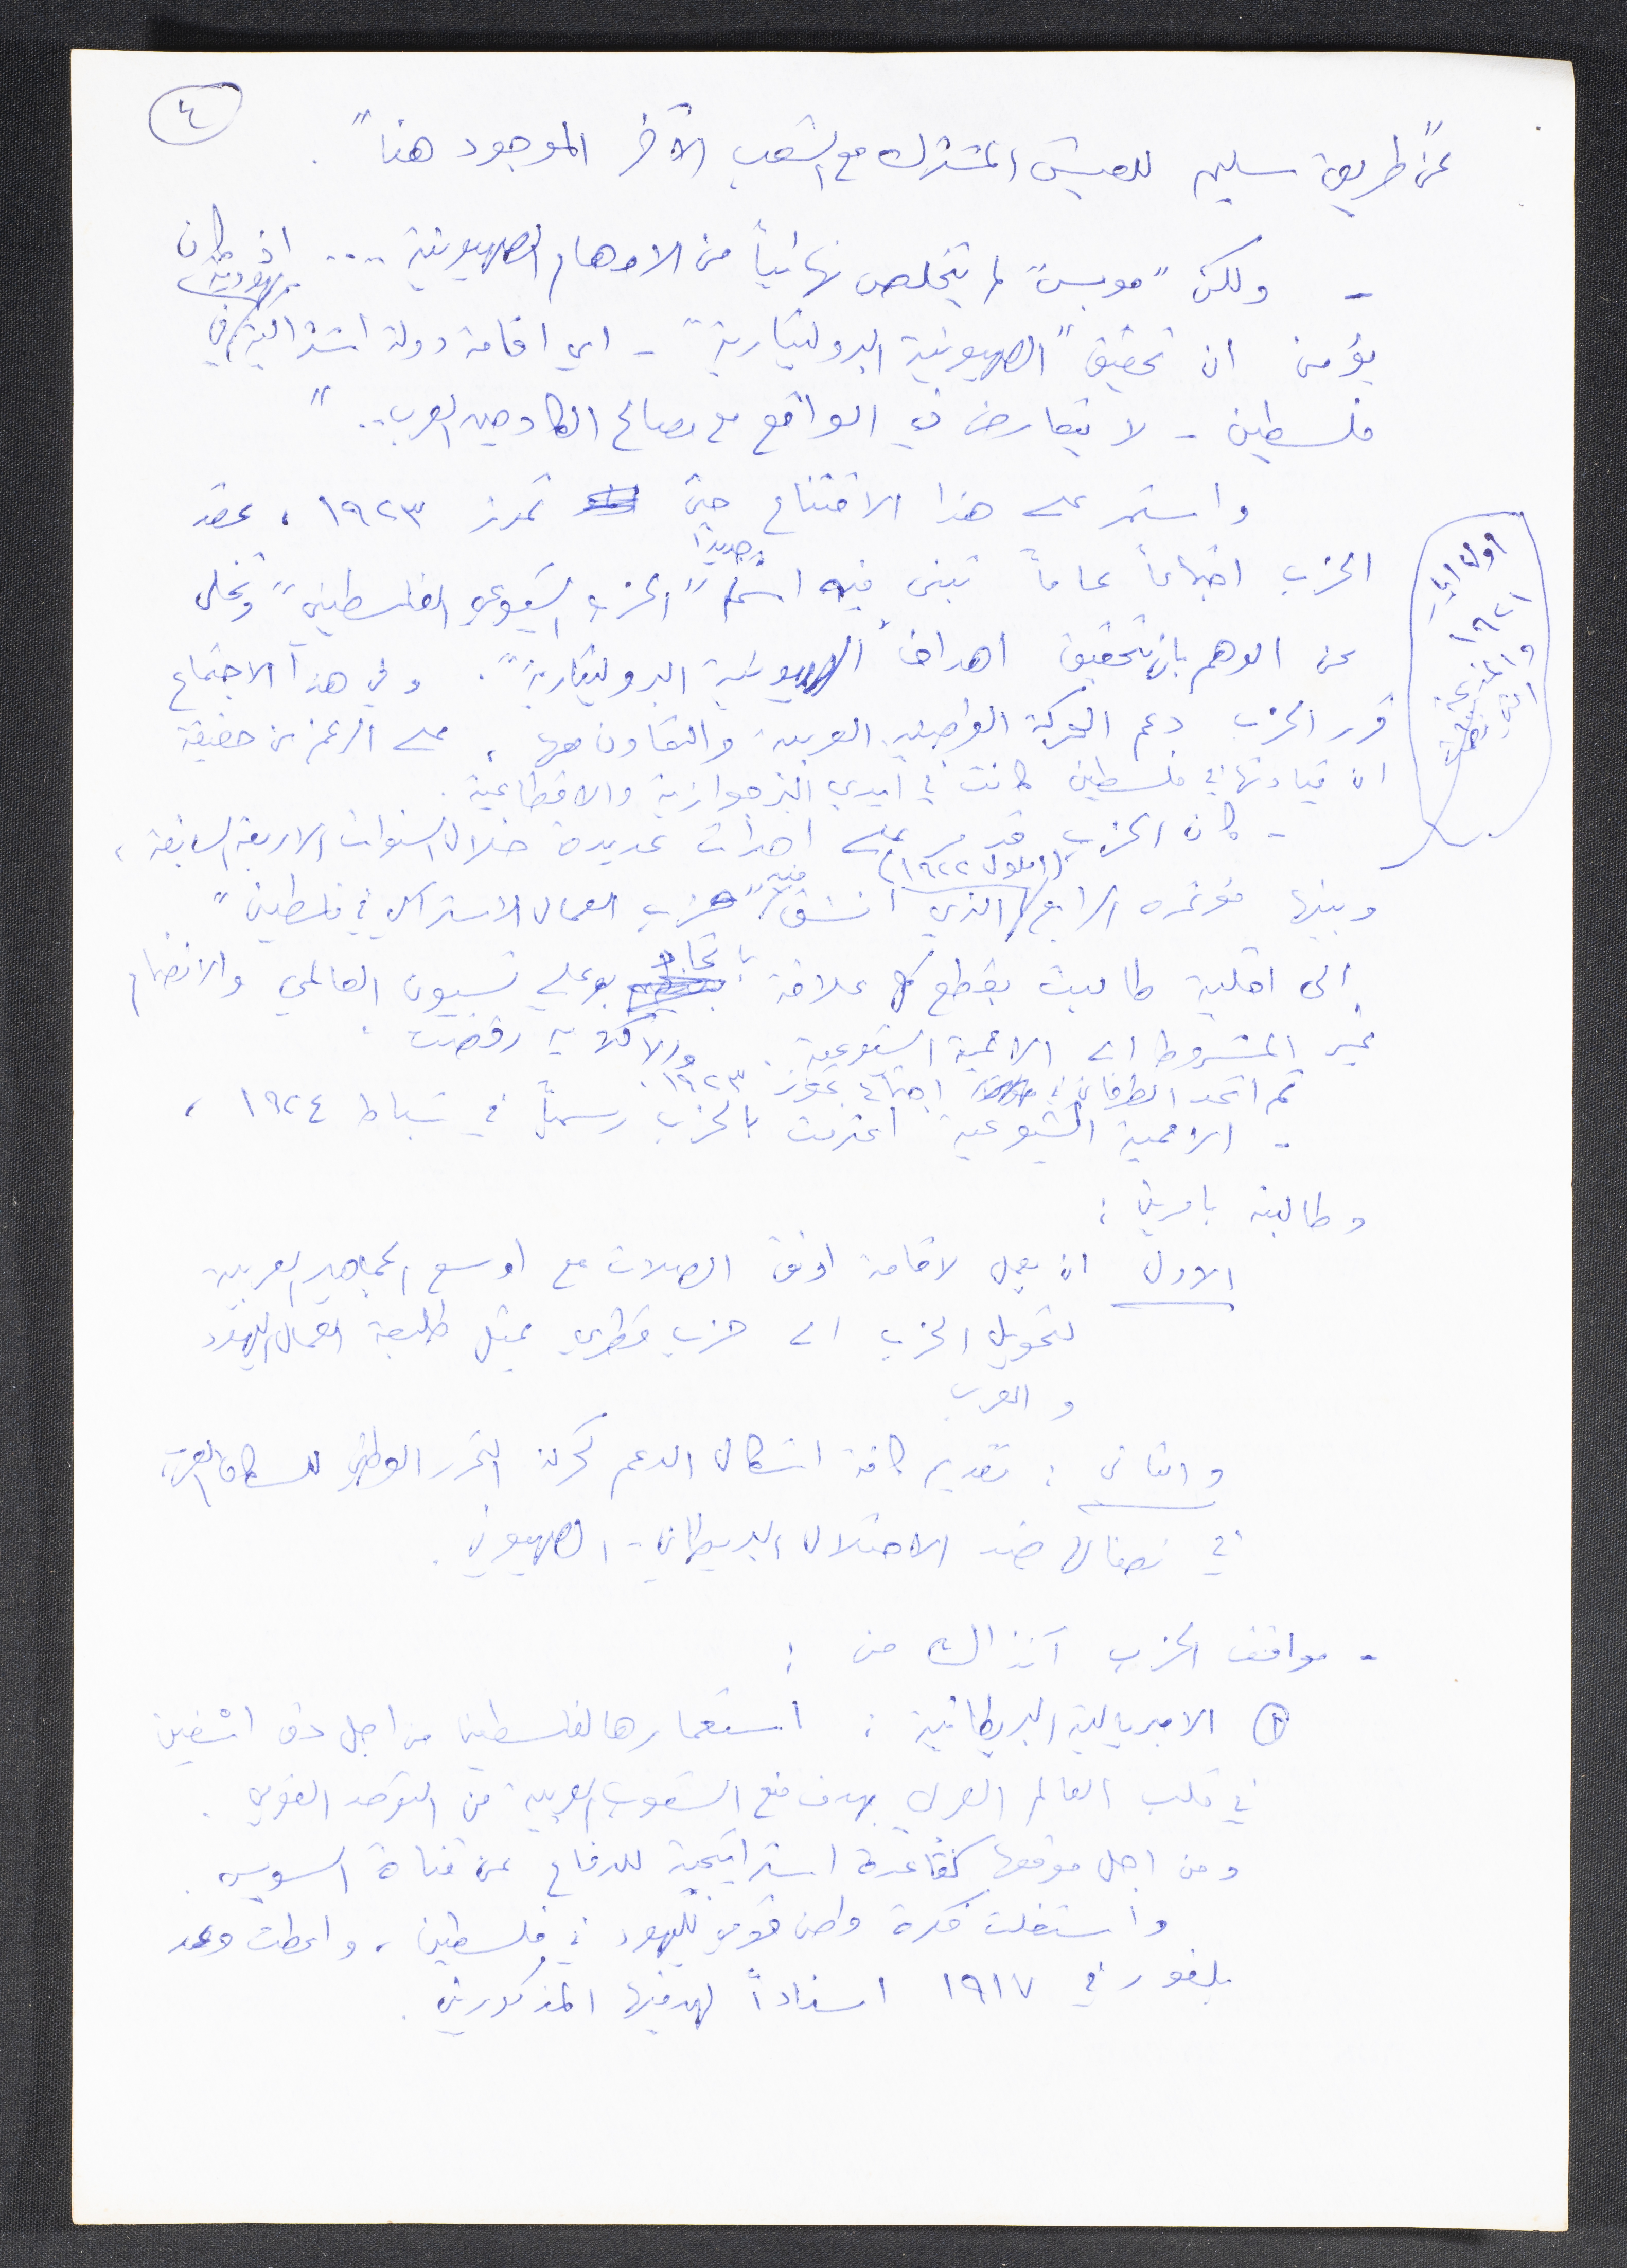 ٤
عن طريق سليم للعيش المشترك مع الشعب الآخر الموجود هنا".
- ولكن "موبس" لم يتخلص نهائياً من الاوهام الصهيونية .... اذ كان
يؤمن ان تحقيق "الصهيونية البروليتارية" - اي اقامة دولة اشتراكية يهودية في
فلسطين - لا يتعارض في الواقع مع مصالح الكادحين العرب.."
واستمر على هذا الاقتناع حتى تموز ١٩٢٣، عقد
الحزب اجتماعاً عاماً تبنى فيه اسماً جديداً "الحزب الشيوعي الفلسطيني" وتخلى
عن الوهم بان تتحقيق اهداف "الصهيونية البروليتارية". وفي هذا الاجتماع
قرر الحزب دعم الحركة القومية العربية والتعاون معها، على الرغم من حقيقة
ان قيادتها في فلسطين كانت في ايدي البرجوازية والاقطاعية.
اول ايار
١٩٢١
والمذبحة
التي
- كان الحزب قد مر على احداث عديدة خلال السنوات الاربعة السابقة،
وبينها مؤتمره الرابع (ايلول ١٩٢٢) الذي انشق فيه "حزب العمال الاشتراكي في فلسطين"
الى اقلية طالبت بقطع كل علاقة باتحاد بوعلي تسيون العالمي والانضمام
غير المشروط الى الاممية الشيوعية. والاكثرية رفضت.
ثم اتحد الطرفان في اجتماع تموز ١٩٢٣.
- الاممية الشيوعية اعترفت بالحزب رسمياً في شباط ١٩٢٤،
وطالبته بامرين:
الاول ان يعمل لاقامة اوثق الصلات مع اوسع الجماهير العربية
لتحويل الحزب الى حزب قطري يمثل طليعة العمال اليهود
و العرب
والثاني: تقديم كافة اشكال الدعم لحركة التحرر الوطني للسكان العرب
في نضالها ضد الاحتلال البريطاني - الصهيوني.
- مواقف الحزب آنذاك من:
١ الامبريالية البريطانية: استعمارها لفلسطين من اجل دق اسفين
في قلب العالم العربي بهدف منع الشعوب العربية من التوحد القومي.
ومن اجل موقعها كقاعدة استراتيجية للدفاع عن قناة السويس.
واستغلت فكرة وطن قومي لليهود في فلسطين، واعطت وعد
بلفور في ١٩١٧ اسناداً لهدفيها المذكورين.